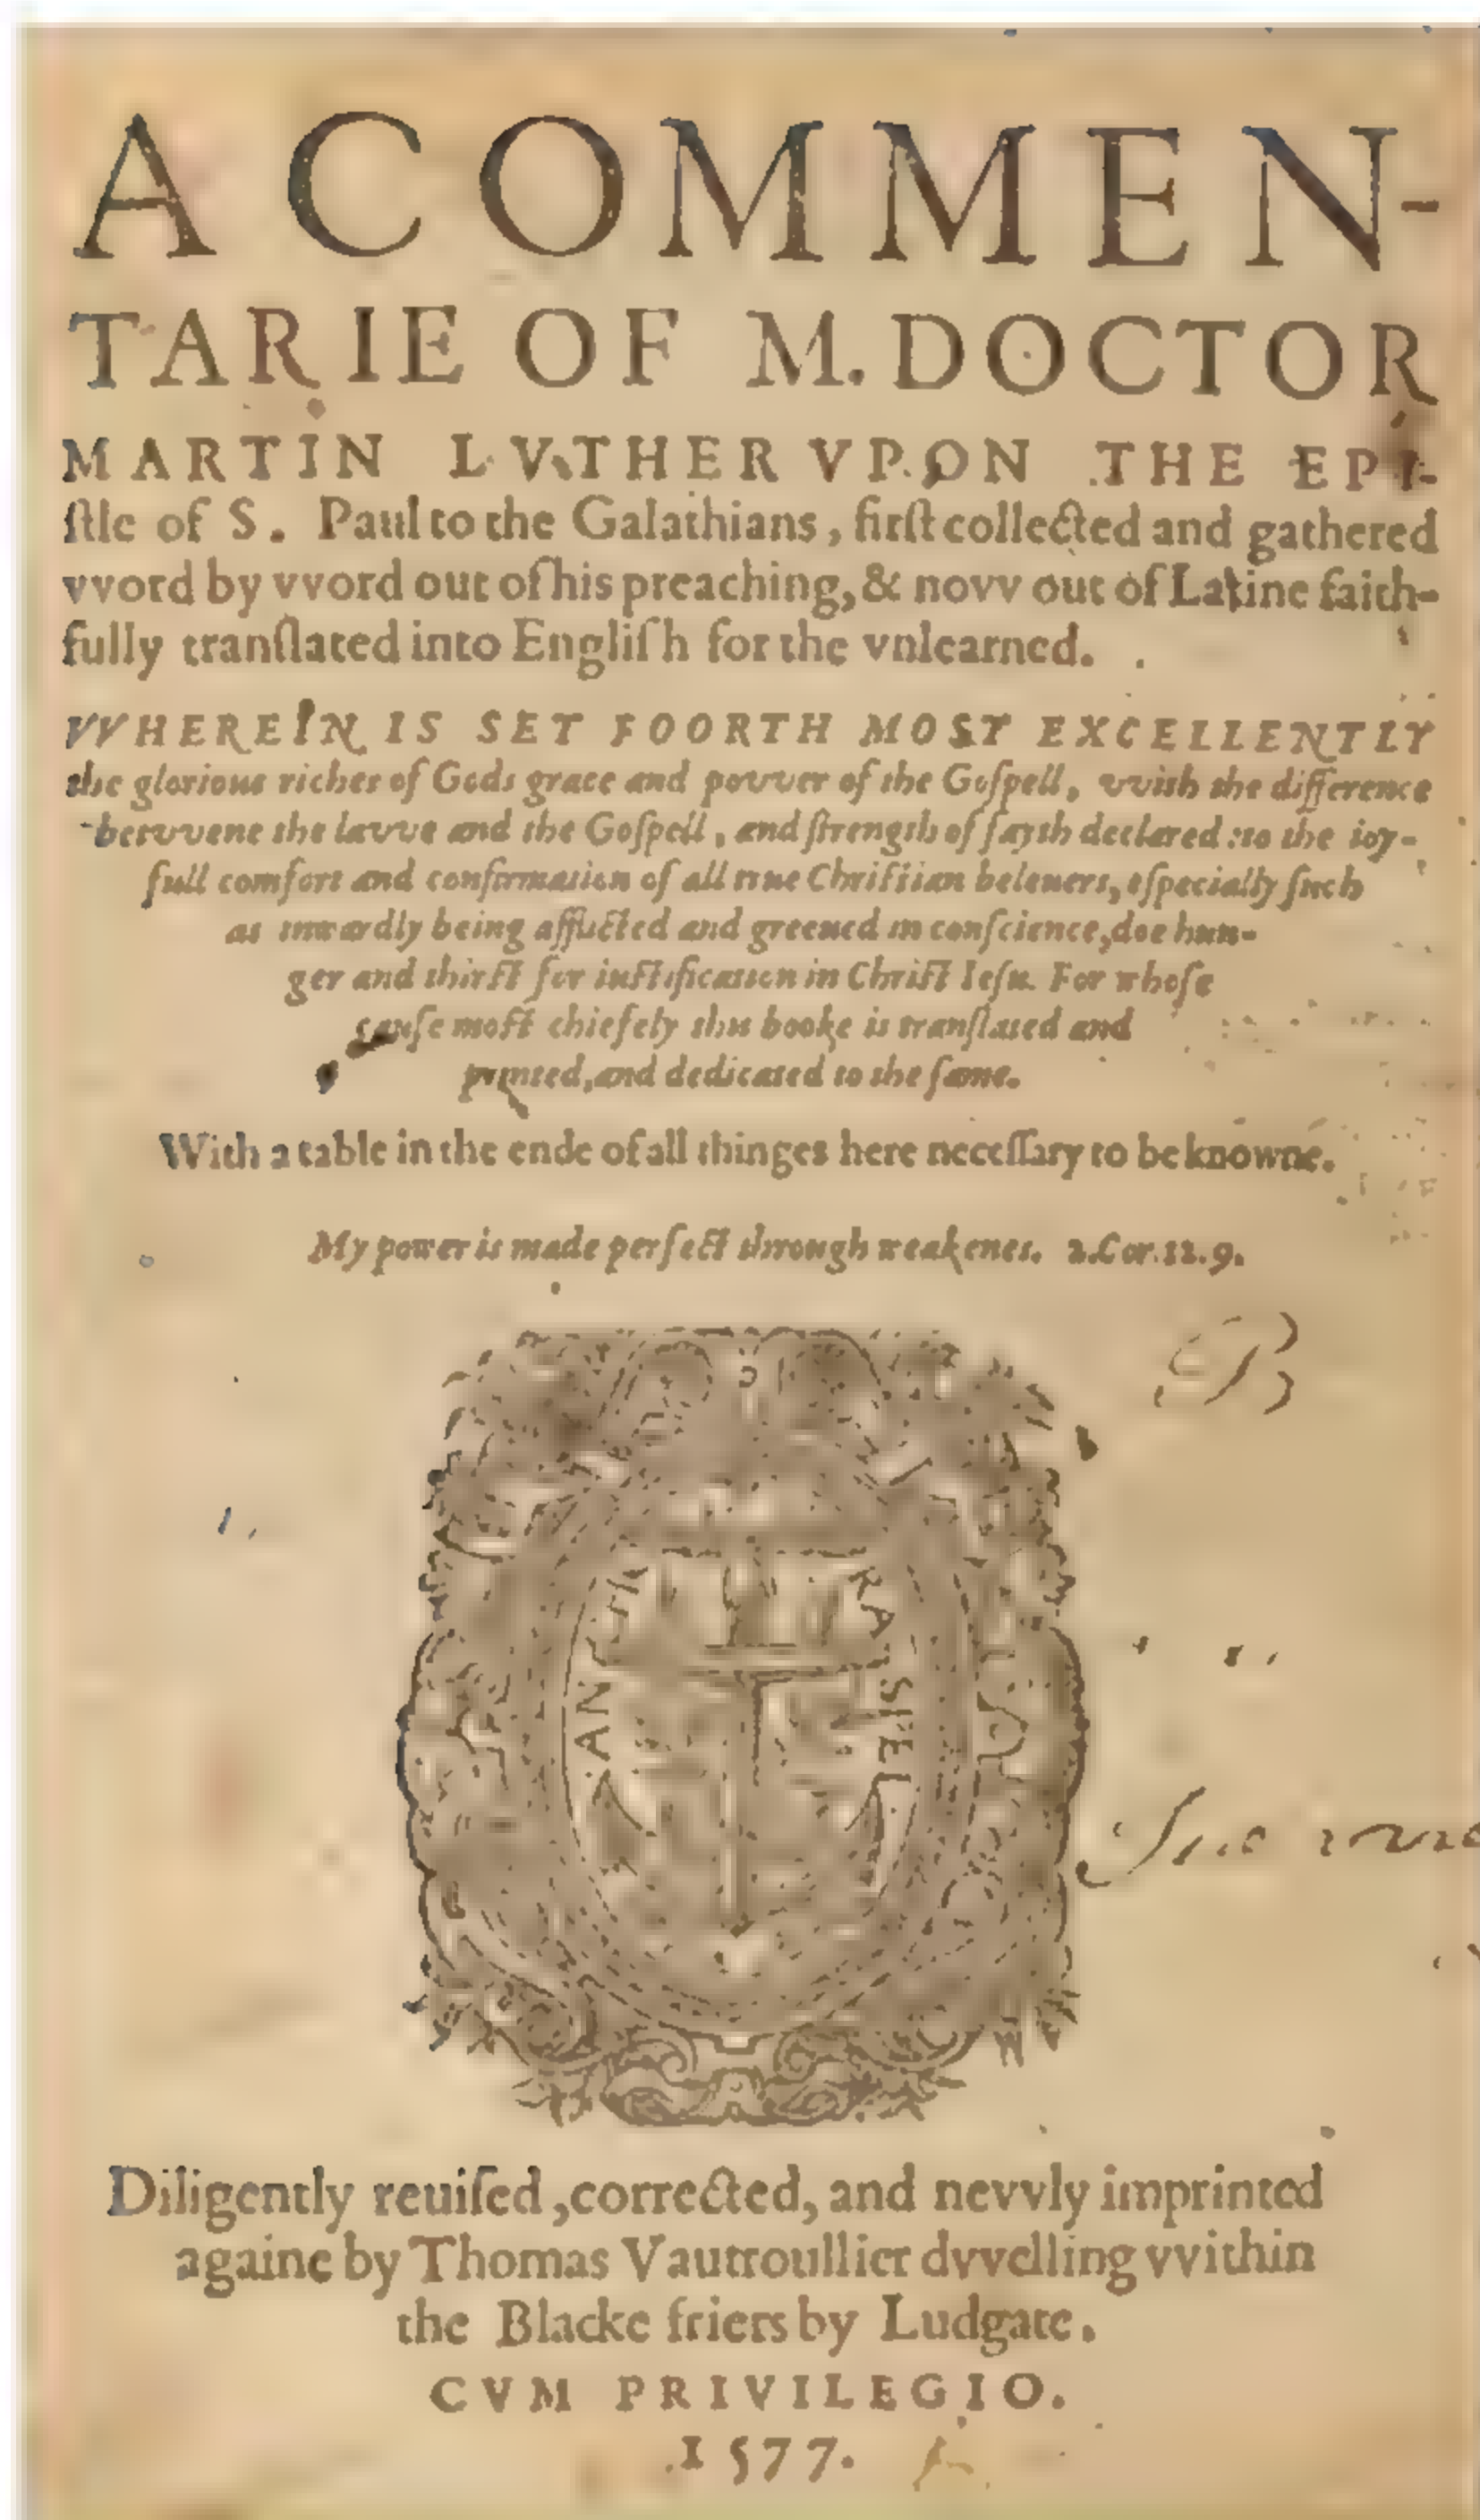 A COMMEN-
TARIE OF M. DOCTOR
MARTIN LVTHER VPON THE EPI-
ſtle of S. Paul to the Galathians, firſt collected and gathered
vvord by vvord out of his preaching, & novv out of Latine faith-
fully tranſlated into Engliſh for the vnlearned.
VVHEREIN IS SET FOORTH MOST EXCELLENTLY
the glorious riches of Gods grace and povver of the Goſpell, vvith the difference
betvvene the lavve and the Goſpell, and ſtrength of fayth declared: to the ioy-
full comfort and confirmation of all true Chriſtian beleuers, eſpecially ſuch
as inwardly being afflicted and greeued in conſcience, doe hun-
ger and thirſt for iuſtification in Chriſt Ieſu. For whoſe
cauſe moſt chiefely this booke is tranſlated and
printed, and dedicated to the ſame.
With a table in the ende of all thinges here neceſſary to be knowne.
My power is made perfect through weakenes. 2. Cor. 12. 9.
Diligently reuiſed, corrected, and nevvly imprinted
againe by Thomas Vautroullier dvvelling vvithin
the Blacke friers by Ludgate.
CVM PRIVILEGIO.
1577.